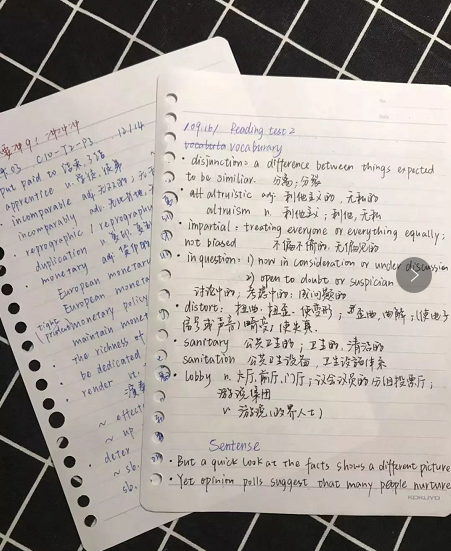 Reading test 2
vocaburary
• disjunction: a difference between things expected
to be similiar. 分离;分裂
altruistic adj. 利他主义的,无私的
altruism n. 利他主义;利他,无私
• impartial: treating everyone or everything equally;
not biased 不偏不倚的,无偏见的
• in question: 1) now in consideration or under discussion
2) open to doubt or suspicion
讨论中的;考虑中的;成问题的
• distort: 扭曲,扭歪,使变形; 歪曲,曲解;(使电子
信号或声音)畸变,使失真.
• sanitary 公共卫生的;卫生的,清洁的
sanitation 公共卫生设备,卫生设施体系
• lobby n. 大厅,前厅,门厅;议会议员的分组投票厅;
游说集团
v. 游说(政界人士)
Sentence
• But a quick look at the facts shows a different picture
• Yet opinion polls suggest that many people nurture
KOKUYO
C10-T2-P3 12/14
put paid to 结束,了结
apprentice n. 学徒
incomparable adj.
incomparably
reprographic / reprography
duplication n.
monetary adj.
European monetary
European monetar
tight monetary policy
maintain monet
the richness of
be dedicated
render vt.
~ effecti
~ up
deter
~ sb.
sb.